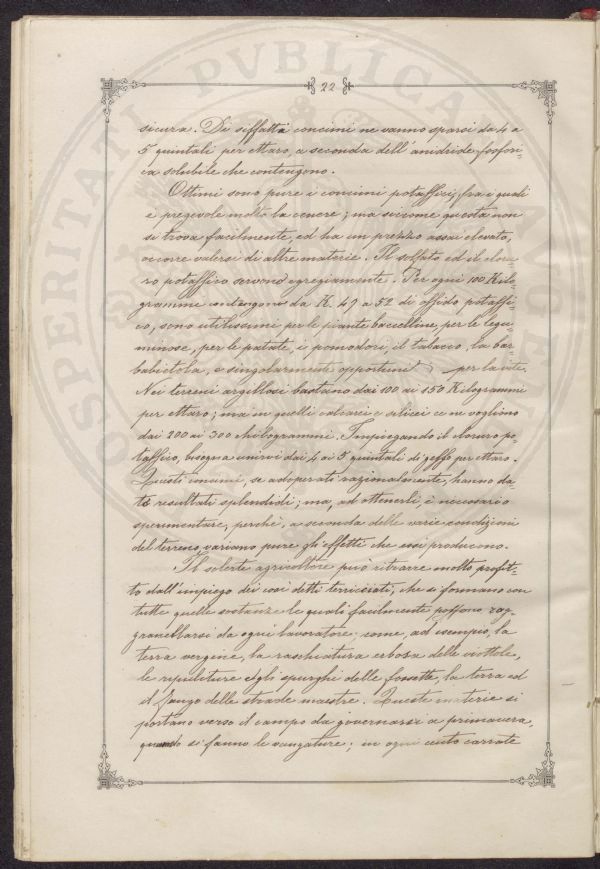 PROSPERITATI PVBLICAE AVGENDAE
22
sicura. Di siffatti concimi ne vanno sparsi da 4 a
5 quintali per ettaro, a seconda dell'anidride fosfori-
ca solubile che contengono.
Ottimi sono pure i concimi potassici, fra i quali
è pregevole molto la cenere; ma siccome questa non
si trova facilmente, ed ha un prezzo assai elevato,
occorre valersi di altre materie. Il solfato ed il cloru-
ro potassico servono egregiamente. Per ogni 100 Kilo-
gramme contengono da K. 49 a 52 di ossido potassi-
co, sono utilissimi per le piante baccelline, per le legu-
minose, per le patate, i pomodori, il tabacco, la bar-
babietola, e singolarmente opportuni per la vite.
Nei terreni argillosi bastano dai 100 ai 150 Kilogrammi
per ettaro; ma in quelli calcarei e silicei ce ne vogliono
dai 200 ai 300 chilogrammi. Impiegando il cloruro po-
tassico, bisogna unirvi dai 4 ai 5 quintali di gesso per ettaro.
Questi concimi, se adoperati razionalmente, hanno da-
to resultati splendidi; ma, ad ottenerli, è necessario
sperimentare, perchè, a seconda delle varie condizioni
del terreno, variano pure gli effetti che essi producono.
Il solerte agricoltore può ritrarre molto profit-
to dall'impiego dei così detti terricciati, che si formano con
tutte quelle sostanze le quali facilmente possono rag-
granellarsi da ogni lavoratore; come, ad esempio, la
terra vergine, la raschiatura erbosa delle viottole,
le ripuliture e gli spurghi delle fossette, la terra ed
il fango delle strade maestre. Queste materie si
portano verso il campo da governarsi a primavera,
quando si fanno le vangature; in ogni cento carrate